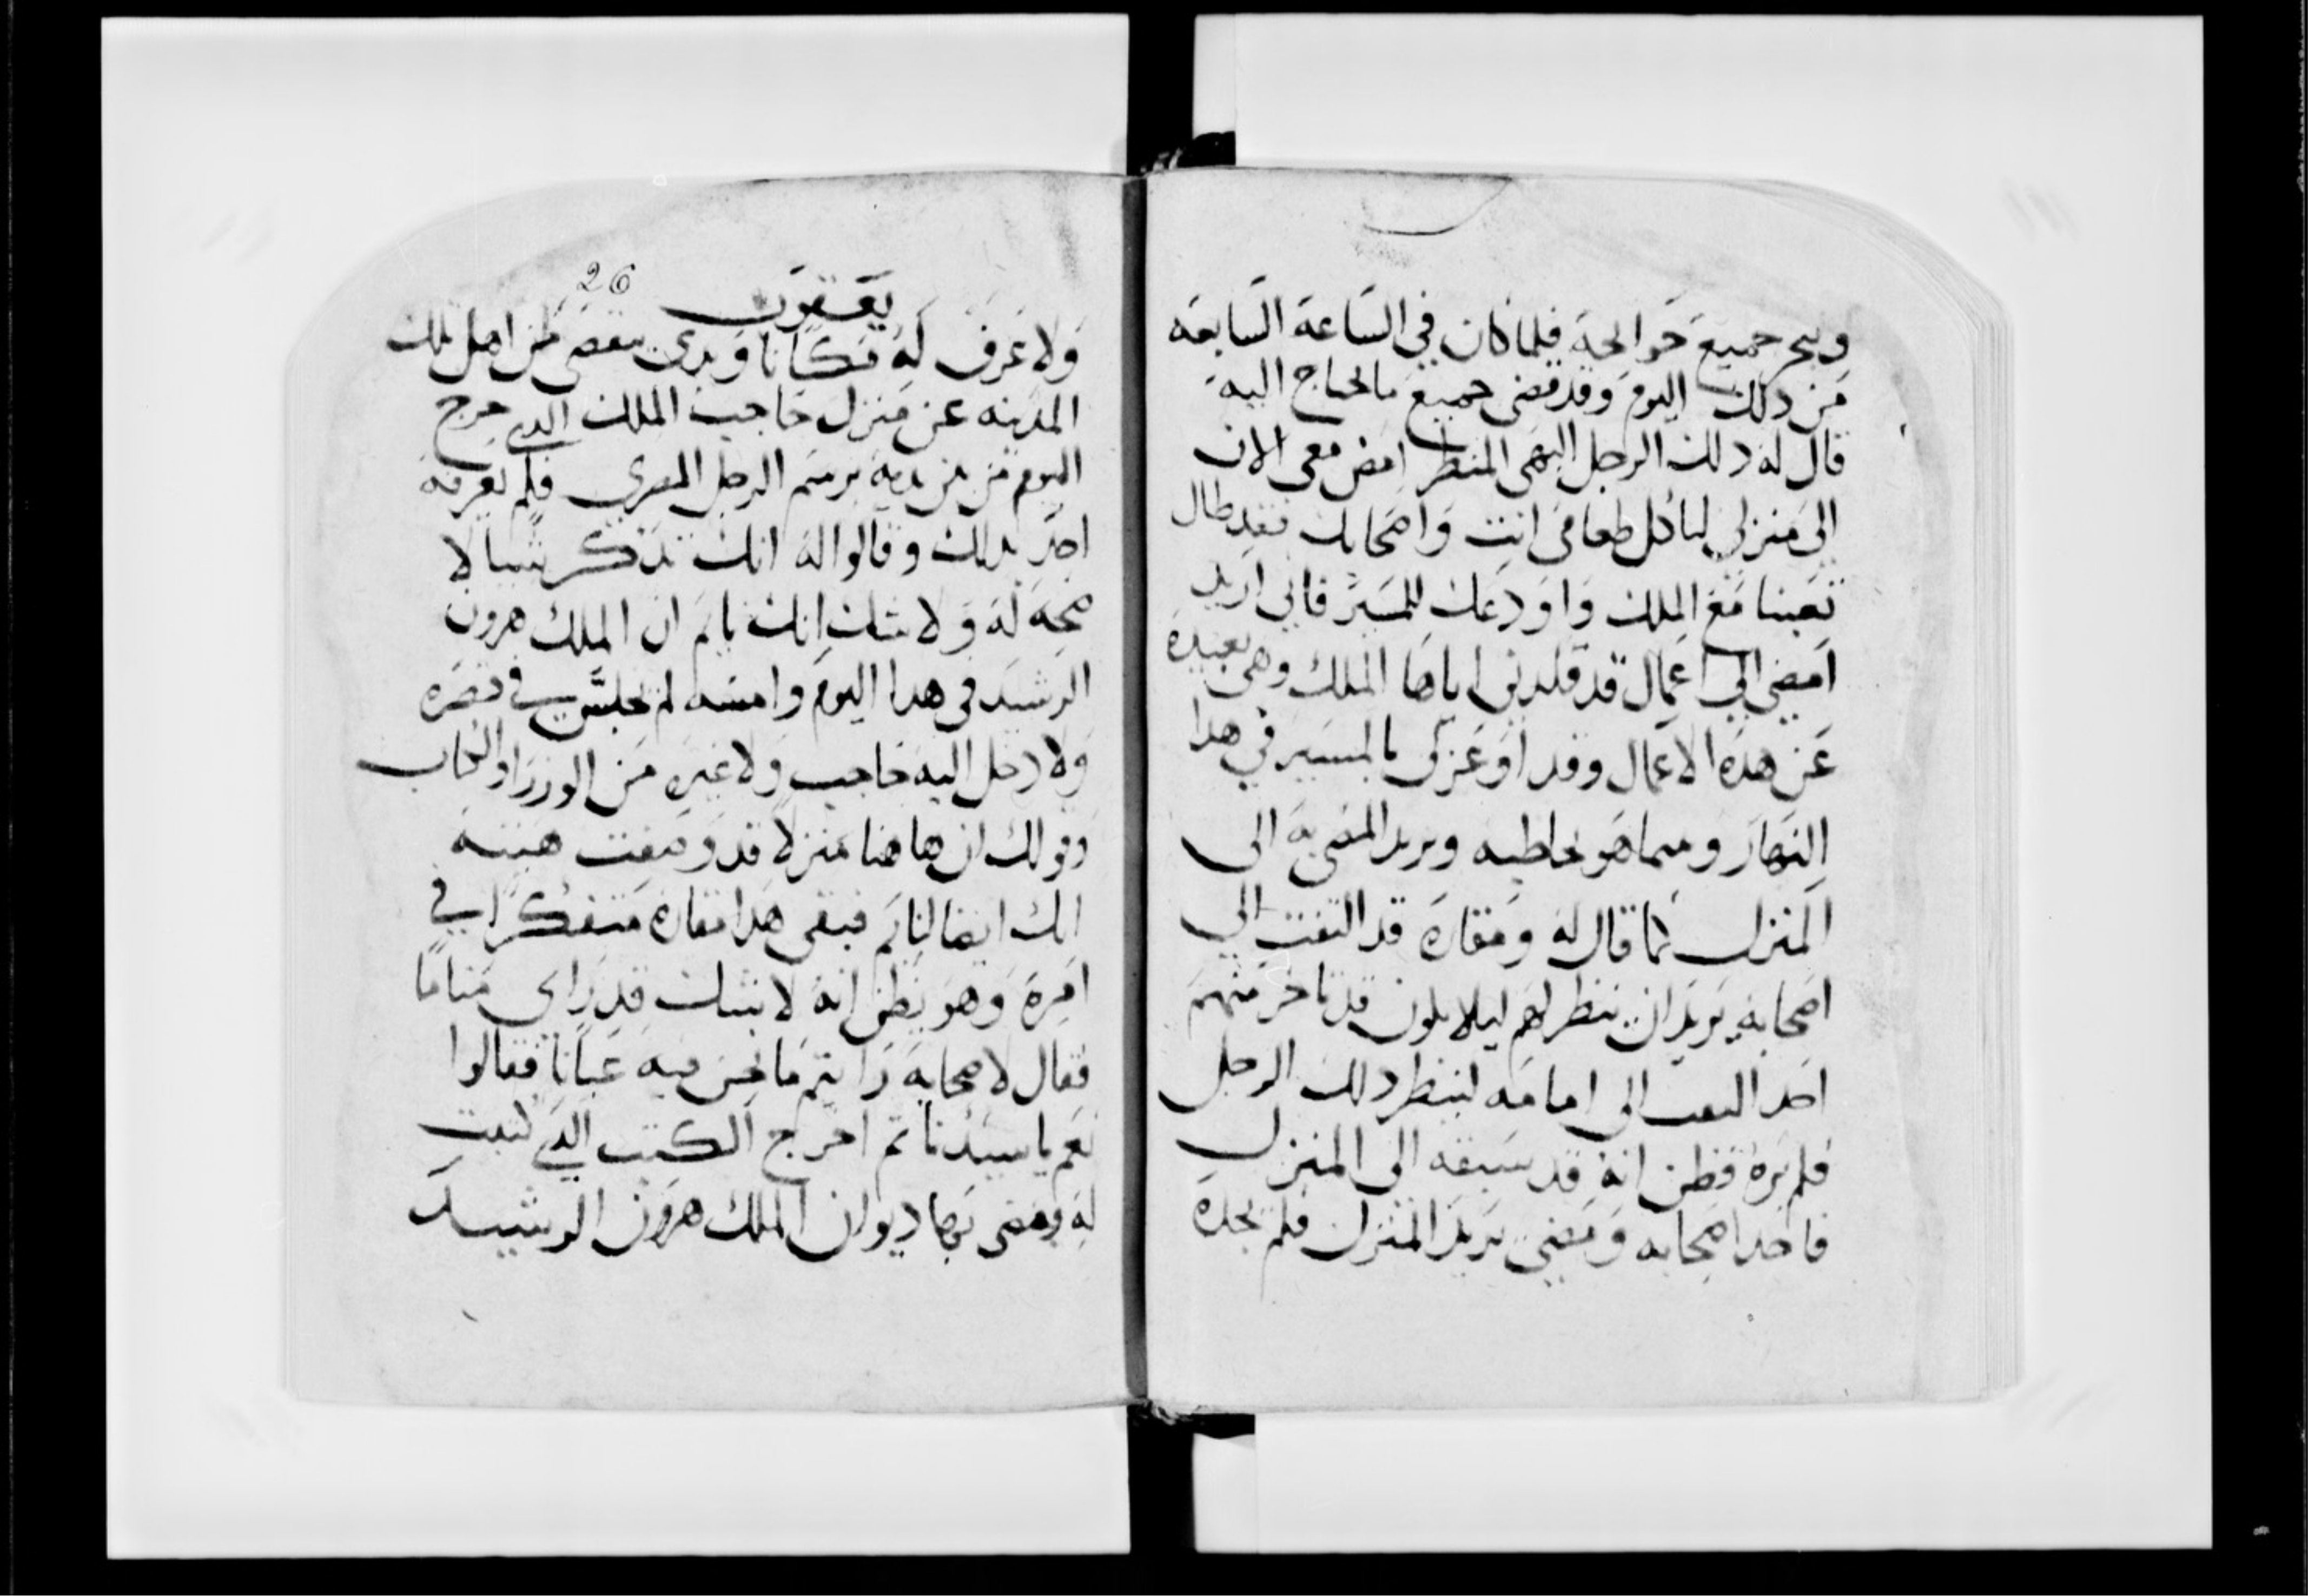 وينجز جميع حوايجه فلما كان في الساعة السابعه
من ذلك اليوم وقد قضى جميع ما يحتاج اليه
قال له ذلك الرجل البهى المنظر امض معى الان
الى منزلي لتاكل طعامى انت واصحابك فقد طال
تعبنا مع الملك واودعك للمسير فانى اريد
امضي الى اعمال قد قلدنى اياها الملك وهى بعيدة
عن هذه الاعمال وقد اوعز لى بالمسير في هذا
النهار وبينما هو يخاطبه ويريد المضى به الى
المنزل كما قال له ومقاره قد التفت الى
اصحابه يريد ان ينظر لهم ليلا يكون قد تاخر منهم
احد التفت الى امامه لينظر ذلك الرجل
فلم يره فظن انه قد سبقه الى المنزل
فاخذ اصحابه ومضى يريد المنزل فلم يجده
26
يعقوب
ولا عرف له مكانا وبدى يتقصى من اهل تلك
المدينه عن منزل حاجب الملك الدي خرج
اليوم من بين يديه برسم الرجل المصرى فلم يعرفه
احد بذلك وقالوا له انك تذكر شيا لا
صحه له ولا شك انك نايم ان الملك هرون
الرشيد فى هذا اليوم وامسه لم يجلس في قصره
ولا دخل اليه حاجب ولا غيره من الوزرا والكتاب
وقولك ان هاهنا منزلا قد وصفت هيته
انك ايضا لنايم فبقى هذا مقاره متفكرا في
امره وهو يظن انه لا شك قد راى مناما
فقال لاصحابه رايتم ما نحن فيه عيانا فقالوا
نعم يا سيدنا ثم اخرج الكتب الذي كتبت
له ومضى بها ديوان الملك هرون الرشيد